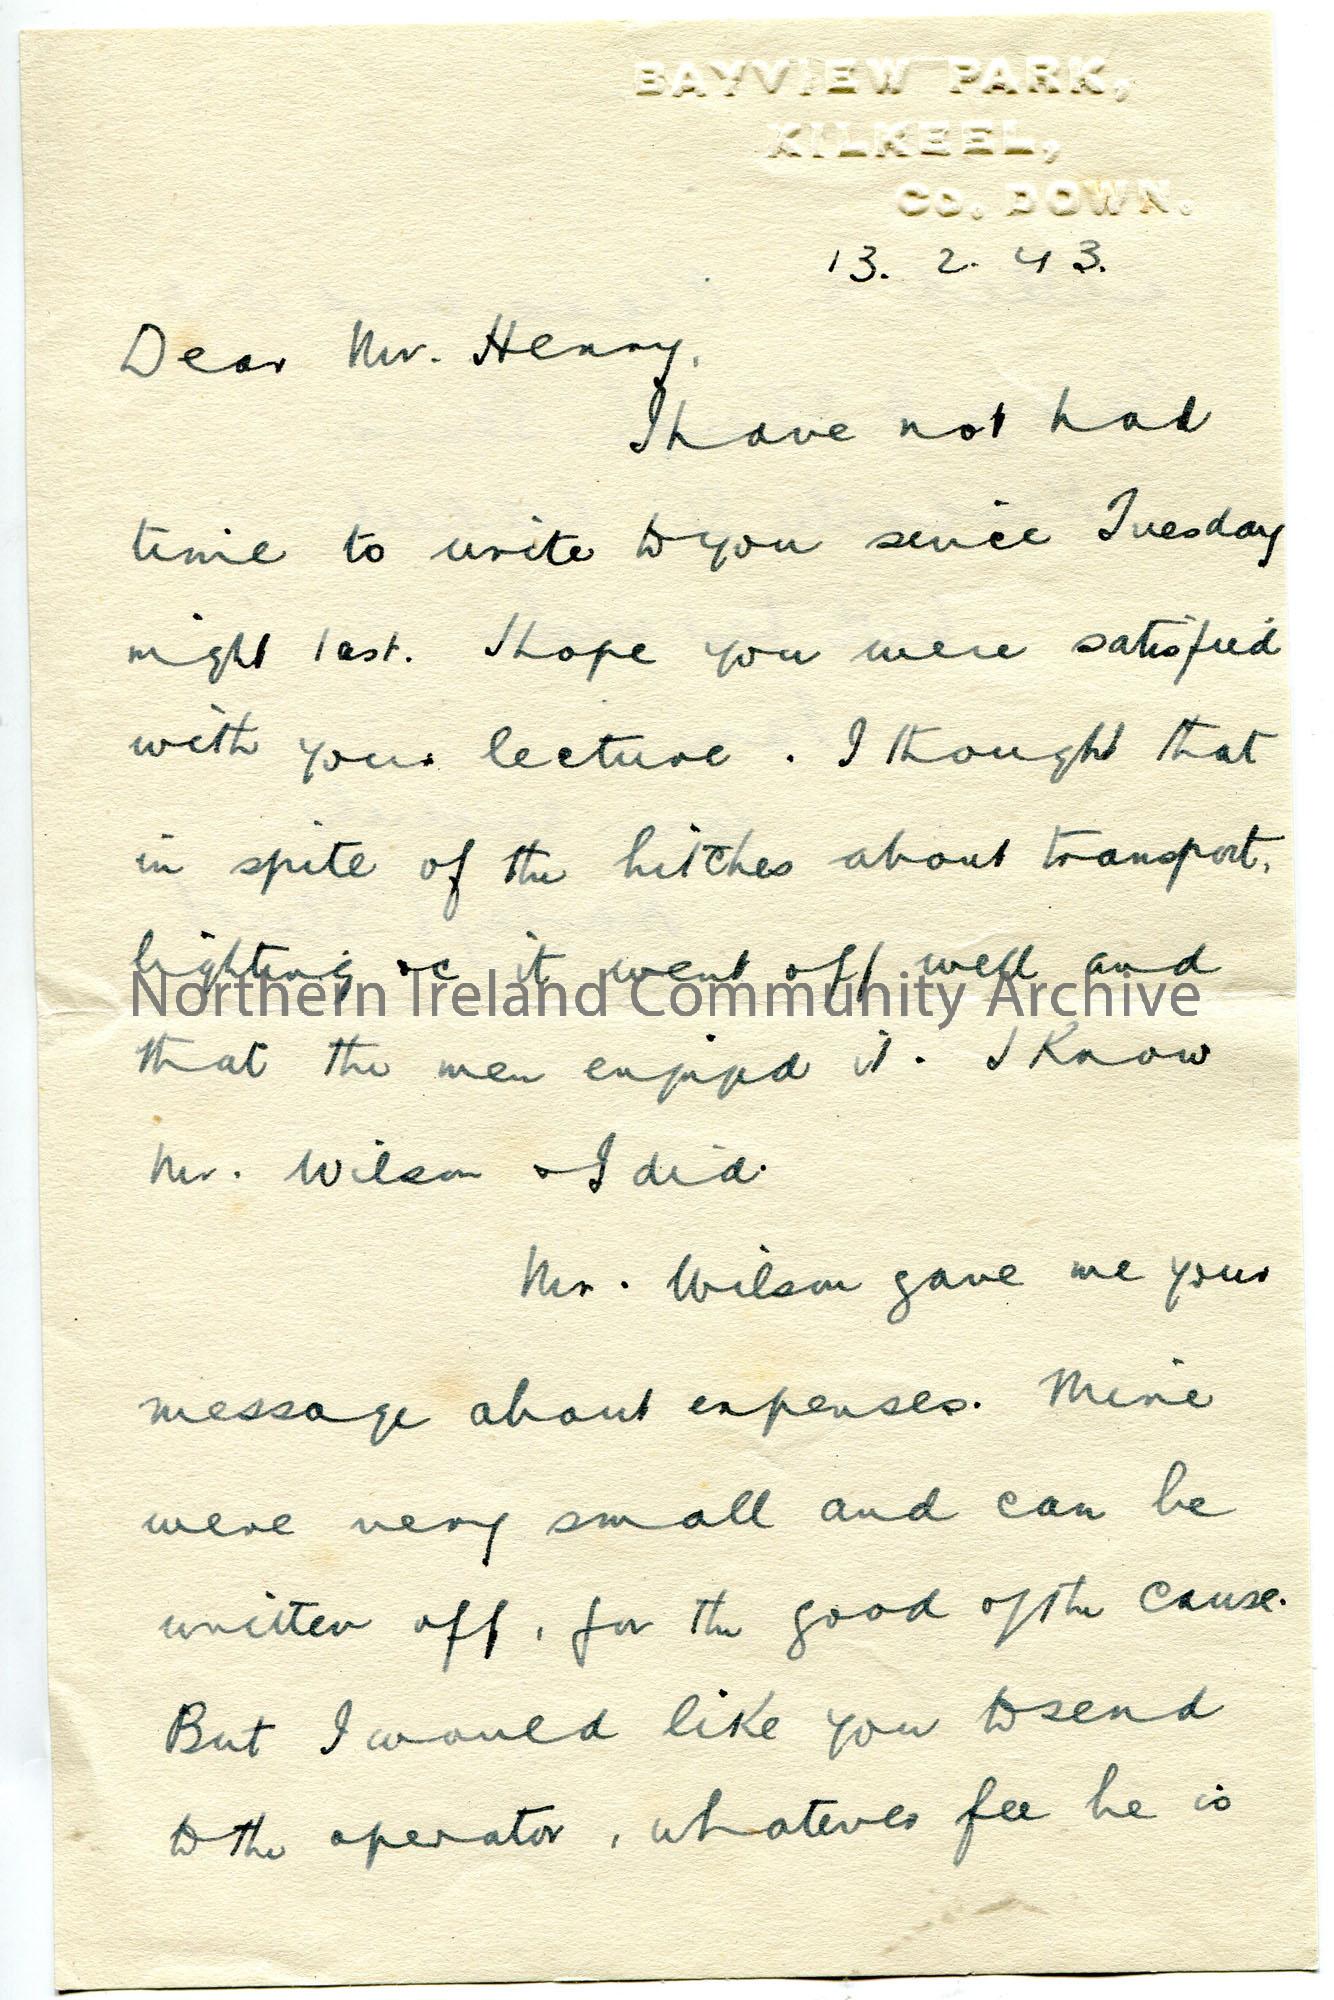 BAYVIEW PARK,
KILKEEL,
Co. DOWN.
13. 2. 43.
Dear Mr. Henry,
I have not had
time to write to you since Tuesday
night last. I hope you were satisfied
with your lecture. I thought that
in spite of the hitches about transport,
lighting &c it went off well and
Northern Ireland Community Archive
that the men enjoyed it. I know
Mr. Wilson & I did.
Mr. Wilson gave me your
message about expenses. Mine
were very small and can be
written off, for the good of the cause.
But I would like you to send
to the operator, whatever fee he is